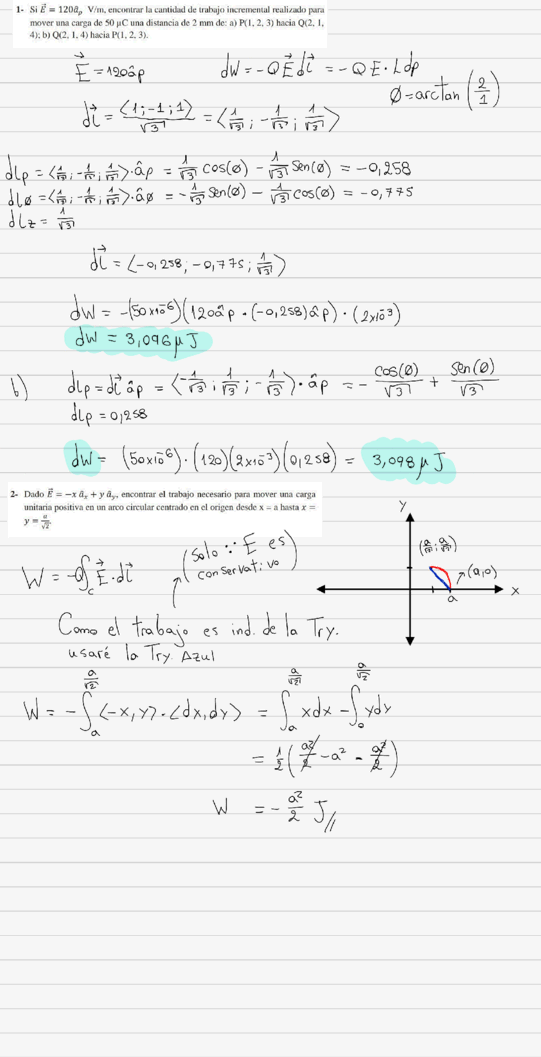 1- Si E⃗ = 120â_ρ V/m, encontrar la cantidad de trabajo incremental realizado para
mover una carga de 50 μC una distancia de 2 mm de: a) P(1, 2, 3) hacia Q(2, 1,
4); b) Q(2, 1, 4) hacia P(1, 2, 3).
E⃗ = 120âρ    dW = -Q E⃗ dl⃗ = -Q E · L dρ
Ø = arctan (2/1)
dl⃗ = ⟨1; -1; 1⟩/√3 = ⟨1/√3; -1/√3; 1/√3⟩
dLρ = ⟨1/√3; -1/√3; 1/√3⟩ · âρ = 1/√3 cos(Ø) - 1/√3 sen(Ø) = -0,258
dLø = ⟨1/√3; -1/√3; 1/√3⟩ · âø = -1/√3 sen(Ø) - 1/√3 cos(Ø) = -0,775
dLz = 1/√3
dl⃗ = ⟨-0,258; -0,775; 1/√3⟩
dW = -(50x10⁻⁶)(120âρ · (-0,258)âρ) · (2x10⁻³)
dW = 3,096 μJ
b) dLρ = dl⃗ âρ = ⟨-1/√3; 1/√3; -1/√3⟩ · âρ = - cos(Ø)/√3 + sen(Ø)/√3
dLρ = 0,258
dW = (50x10⁻⁶) · (120)(2x10⁻³)(0,258) = 3,098 μJ
2- Dado E⃗ = -x â_x + y â_y, encontrar el trabajo necesario para mover una carga
unitaria positiva en un arco circular centrado en el origen desde x = a hasta x =
y = a/√2.
W = -Q∫_c E⃗ · dl⃗
(Solo ∵ E es
conservativo)
Y
(a/√2; a/√2)
(a,0)
X
a
Como el trabajo es ind. de la Try.
usaré la Try. Azul
W = -∫_a^{a/√2} ⟨-x, y⟩ · ⟨dx, dy⟩ = ∫_a^{a/√2} x dx - ∫_0^{a/√2} y dy
= 1/2 (a²/2 - a² - a²/2)
W = - a²/2 J //